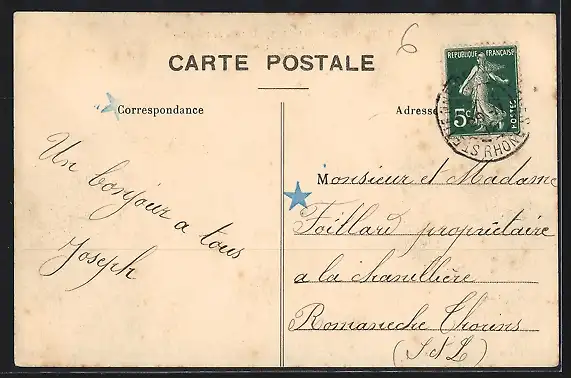 6
CARTE POSTALE
REPUBLIQUE FRANÇAISE
5c
POSTES
Correspondance
Adresse
RHONE
Un bonjour a tous
Joseph
Monsieur et Madame
Foillard propriétaire
a la chanillière
Romaneche Thorins
(S et L)